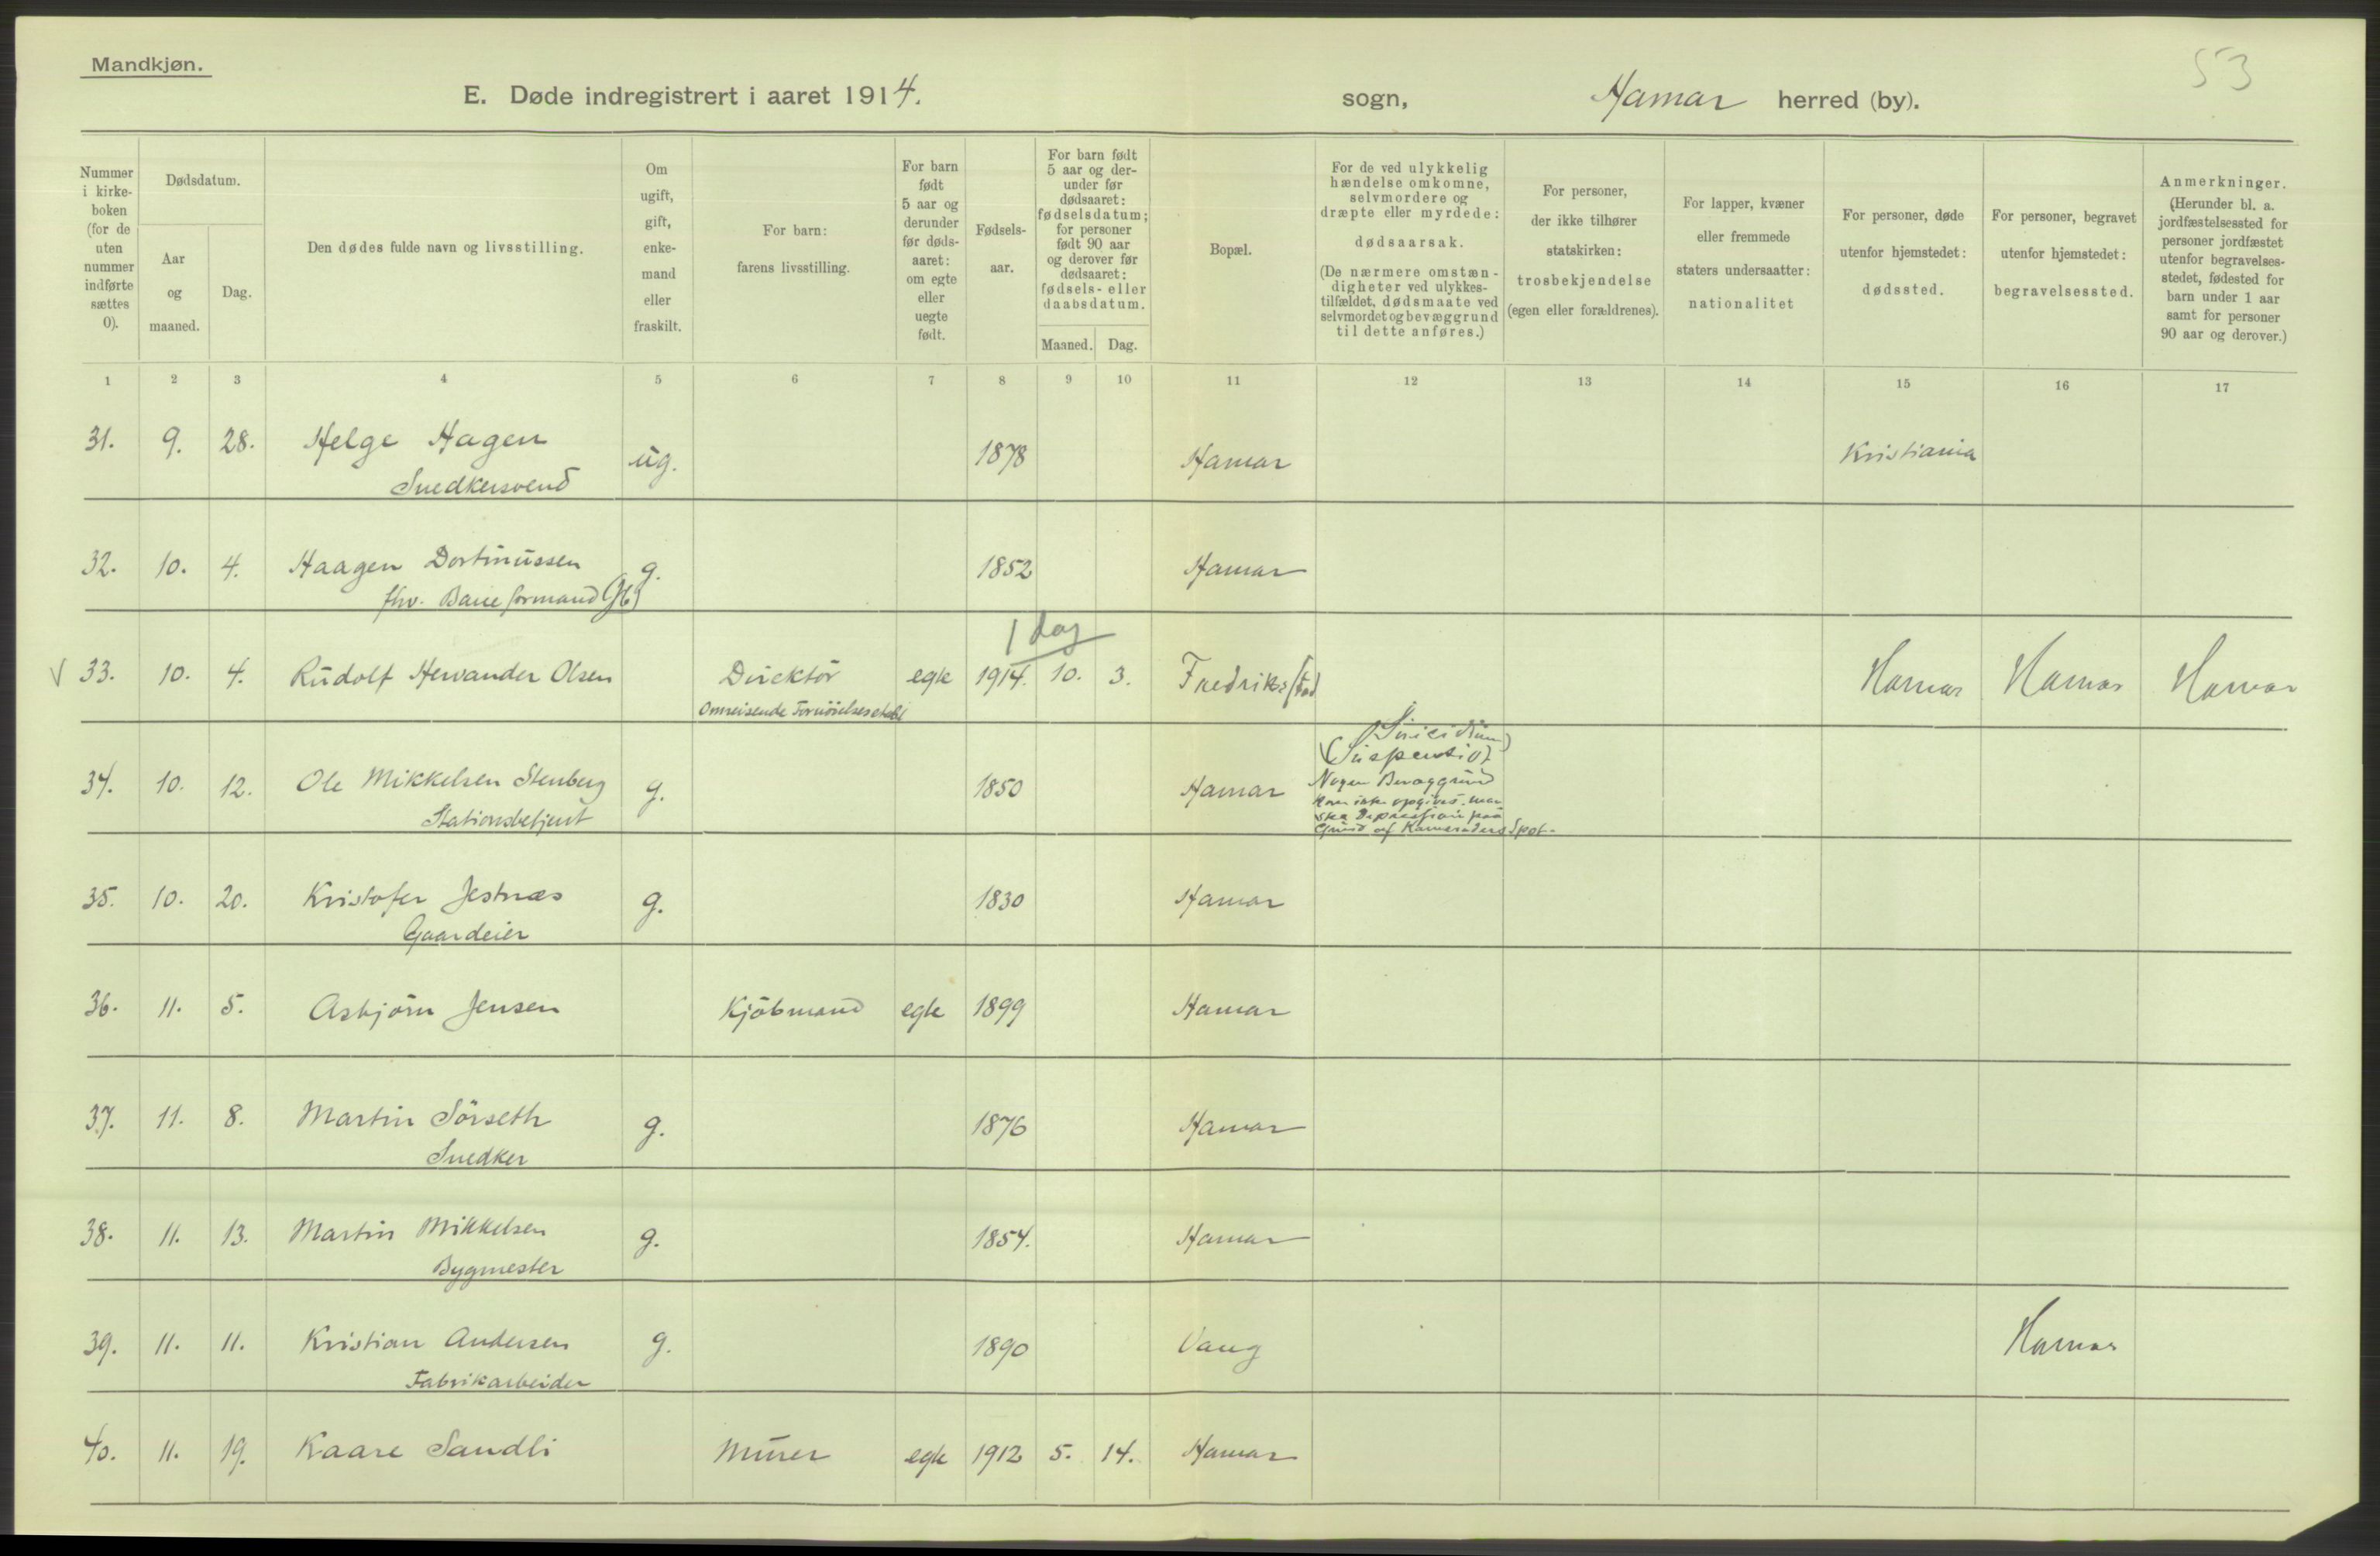 Mandkjøn.
53
E. Døde indregistrert i aaret 1914. sogn, Hamar herred (by).
Nummer i kirke-boken (for de uten nummer indførte sættes 0).
Dødsdatum.
Aar og maaned.
Dag.
Den dødes fulde navn og livsstilling.
Om ugift, gift, enke-mand eller fraskilt.
For barn: farens livsstilling.
For barn født 5 aar og derunder før døds-aaret: om egte eller uegte født.
Fødsels-aar.
For barn født 5 aar og der-under før dødsaaret: fødselsdatum; for personer født 90 aar og derover før dødsaaret: fødsels- eller daabsdatum.
Maaned. Dag.
Bopæl.
For de ved ulykkelig hændelse omkomne, selvmordere og dræpte eller myrdede: dødsaarsak. (De nærmere omstæn-digheter ved ulykkes-tilfældet, dødsmaate ved selvmordet og bevæggrund til dette anføres.)
For personer, der ikke tilhører statskirken: trosbekjendelse (egen eller forældrenes).
For lapper, kvæner eller fremmede staters undersaatter: nationalitet
For personer, døde utenfor hjemstedet: dødssted.
For personer, begravet utenfor hjemstedet: begravelsessted.
Anmerkninger. (Herunder bl. a. jordfæstelsessted for personer jordfæstet utenfor begravelses-stedet, fødested for barn under 1 aar samt for personer 90 aar og derover.)
1 2 3 4 5 6 7 8 9 10 11 12 13 14 15 16 17
31. 9. 28. Helge Hagen ug. 1878 Hamar Kristiania
Snedkersvend
32. 10. 4. Haagen Dortmussen g. 1852 Hamar
fhv. Baneformand
1 dag
V 33. 10. 4. Rudolf Hervander Olsen Direktör egte 1914. 10. 3. Fredrikstad Hamar Hamar Hamar
Omreisende Fornöielsesetabl
Suicidium
(Suspensio)
34. 10. 12. Ole Mikkelsen Stenberg g. 1850 Hamar Nogen Bevæggrund
Stationsbetjent kan ikke opgives, man
ske Depression paa
Grund af Kameraders Spot.
35. 10. 20. Kristofer Jestnæs g. 1830 Hamar
Gaardeier
36. 11. 5. Asbjörn Jensen Kjöbmand egte 1899 Hamar
37. 11. 8. Martin Sörseth g. 1876 Hamar
Snedker
38. 11. 13. Martin Mikkelsen g. 1854. Hamar
Bygmester
39. 11. 11. Kristian Andersen g. 1890 Vang Hamar
Fabrikarbeider
40. 11. 19. Kaare Sandli Murer egte 1912 5. 14. Hamar